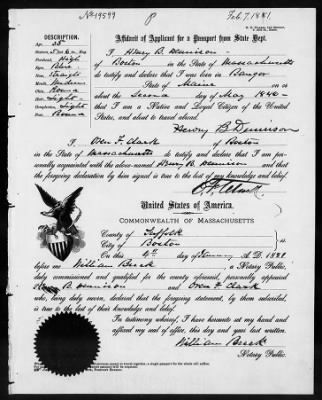 No 19599
P
Feb 7. 1881.
DESCRIPTION.
Affidavit of Applicant for a Passport from State Dept.
Age,
Stature, 5 ft 6 in. Eng.
Forehead, High
Eyes, Blue
Nose, Straight
Mouth, Medium
Chin, Round
Hair, Light
Complexion, Light
Face, Round
I Henry B. Dennison
of Boston in the State of Massachusetts
do testify and declare that I was born in Bangor
State of Maine on or
about the Second day of May 1846
that I am a Native and Loyal Citizen of the United
States, and about to travel abroad.
Henry B Dennison
I Oren F. Clark of Boston
in the State of Massachusetts do testify and declare that I am per-
sonally acquainted with the above-named Henry B. Dennison and that
the foregoing declaration by him signed is true to the best of my knowledge and belief.
O. F. Clark
United States of America.
COMMONWEALTH OF MASSACHUSETTS
County of Suffolk
City of Boston
On this 4th day A.D. 1881
before me William Burck, a Notary Public,
duly commissioned and qualified for the county aforesaid, personally appeared
Henry B. Dennison and Oren F. Clark
who, being duly sworn, declared the foregoing statement, by them subscribed,
is true to the best of their knowledge and belief.
In testimony whereof, I have hereunto set my hand and
affixed my seal of office, this day and year last written.
William Burck
Notary Public.